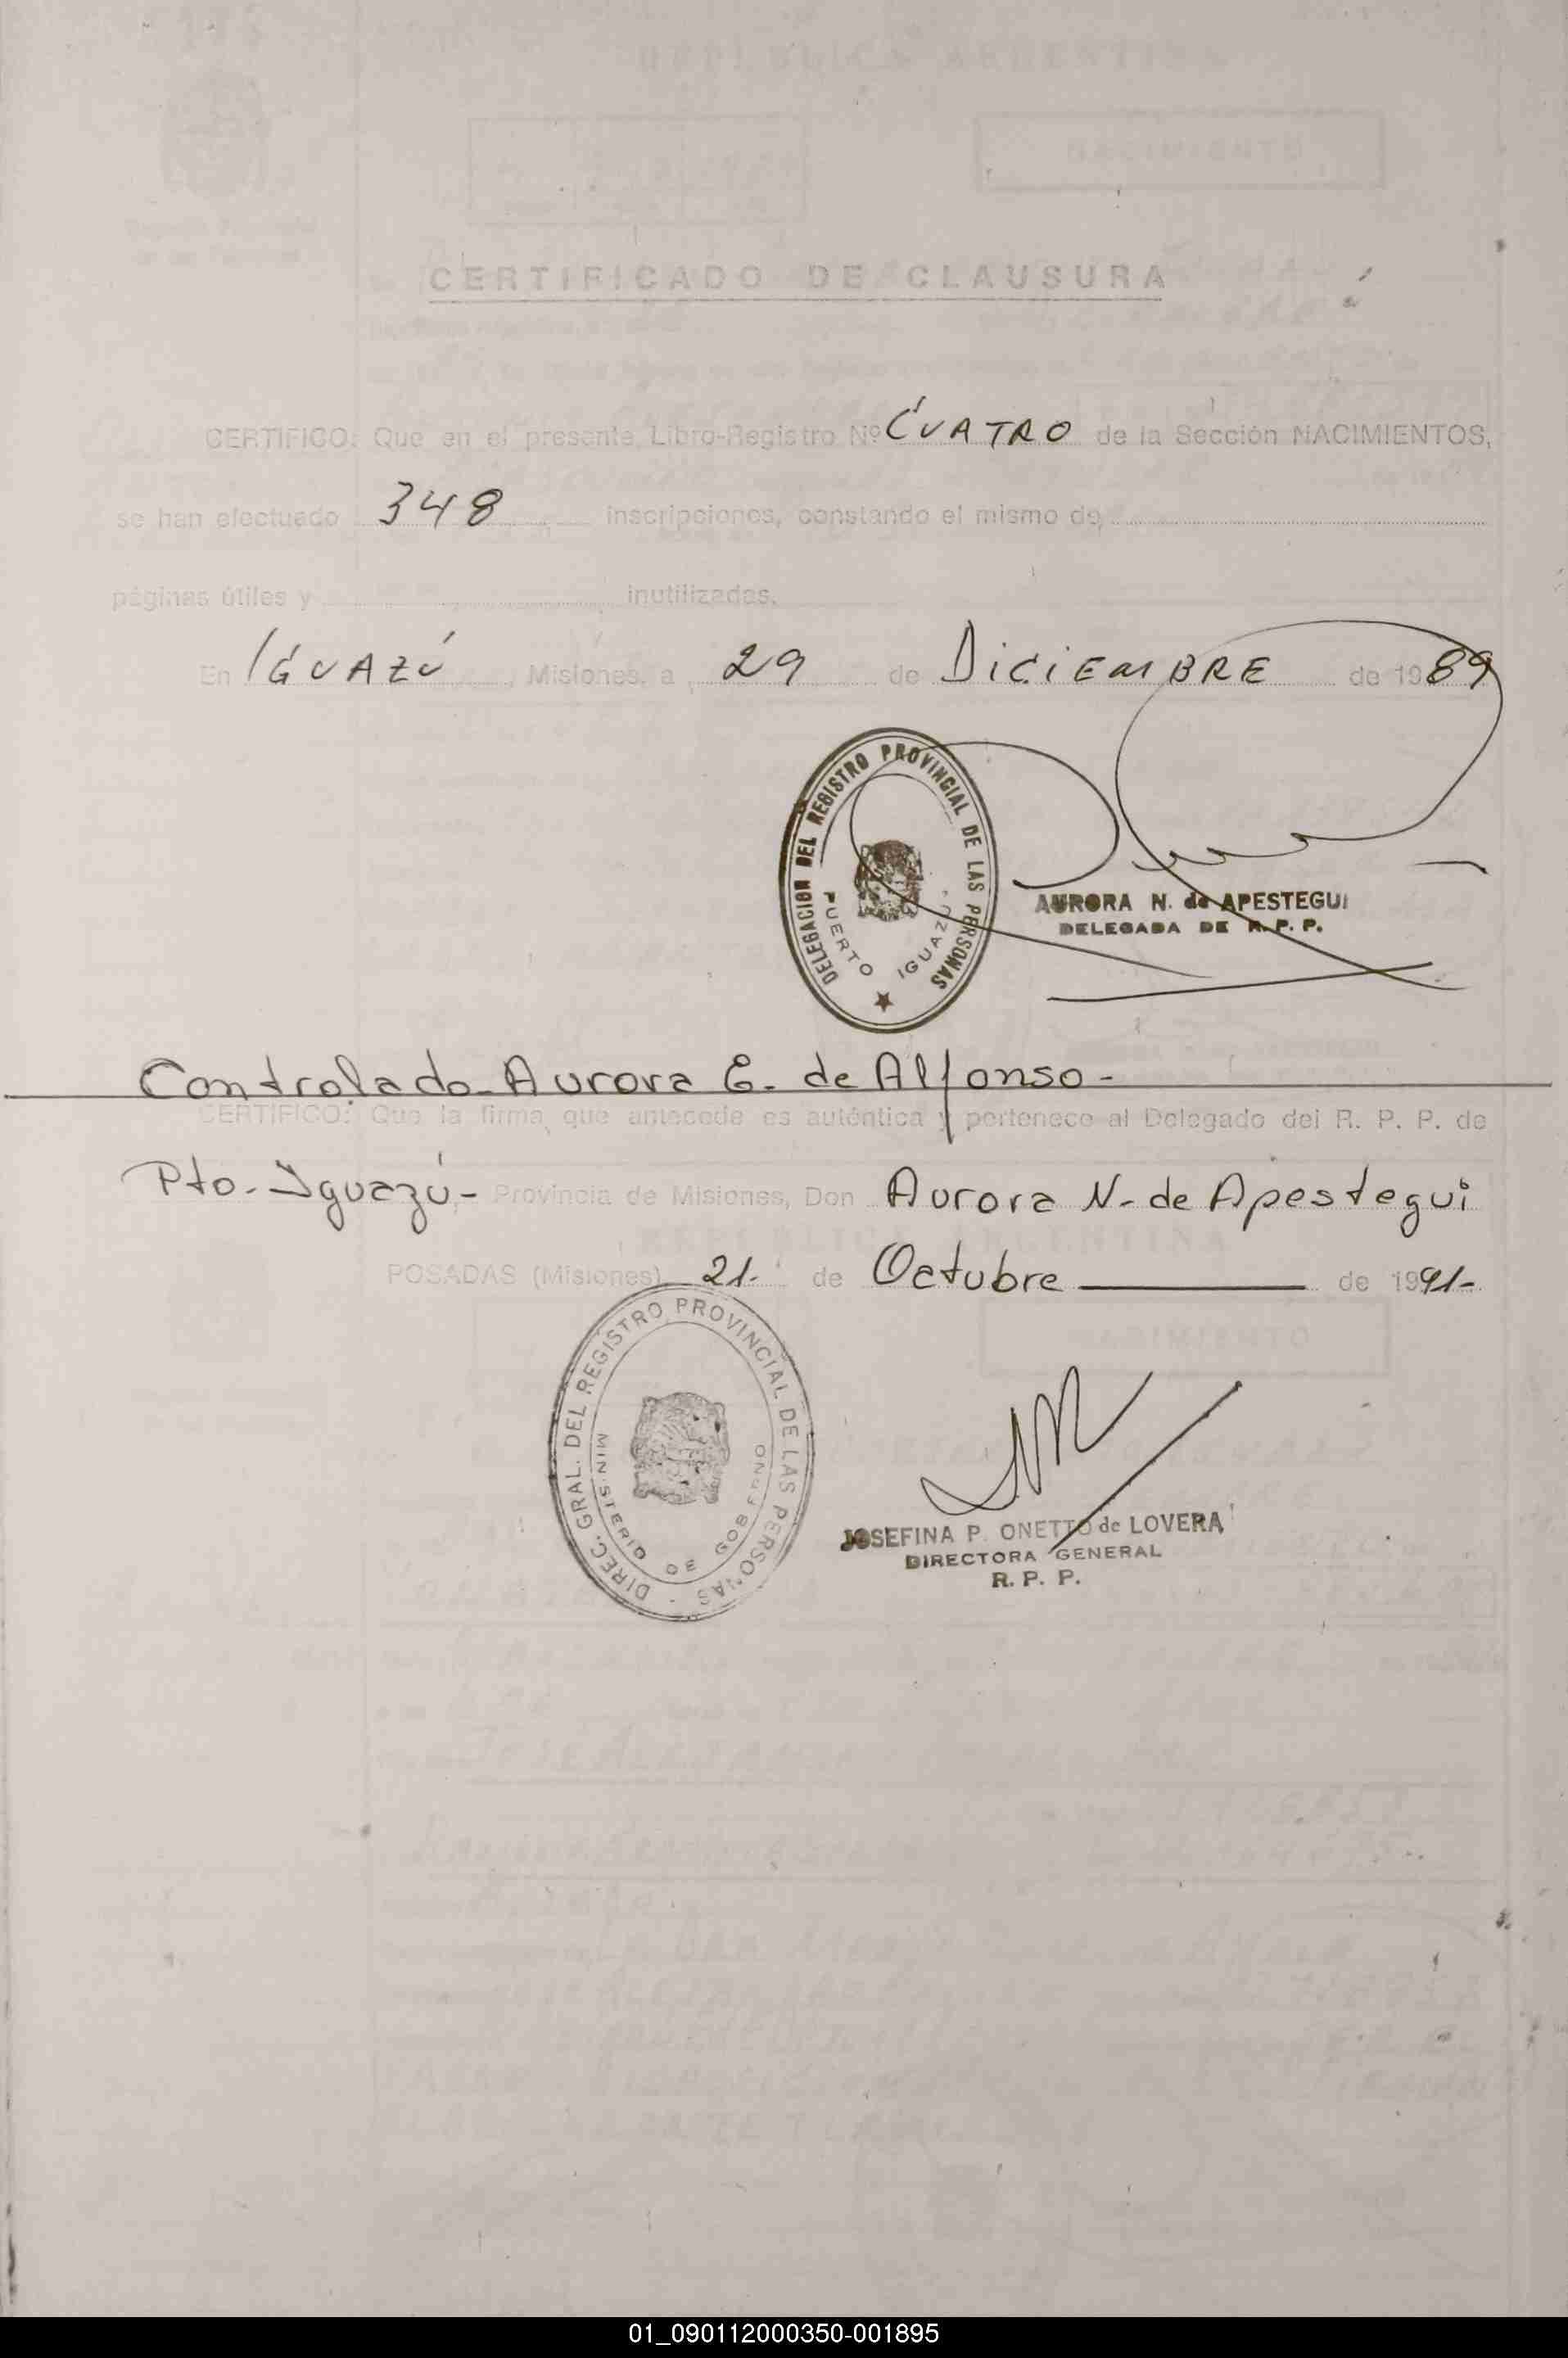 CERTIFICADO DE CLAUSURA
CERTIFICO: Que en el presente Libro-Registro Nº CUATRO de la Sección NACIMIENTOS,
se han efectuado 348 inscripciones, constando el mismo de
páginas útiles y inutilizadas.
En IGUAZÚ, Misiones, a 29 de DICIEMBRE de 1989
DELEGACION DEL REGISTRO PROVINCIAL DE LAS PERSONAS
PUERTO IGUAZU
AURORA N. de APESTEGUI
DELEGADA DE R. P. P.
Controlado - Aurora E. de Alfonso -
CERTIFICO: Que la firma que antecede es auténtica y pertenece al Delegado del R. P. P. de
Pto. Iguazú - Provincia de Misiones, Don Aurora N. de Apestegui
POSADAS (Misiones) 21. de Octubre de 1991-
DIREC. GRAL. DEL REGISTRO PROVINCIAL DE LAS PERSONAS -
MINISTERIO DE GOBIERNO
JOSEFINA P. ONETTO de LOVERA
DIRECTORA GENERAL
R. P. P.
01_090112000350-001895